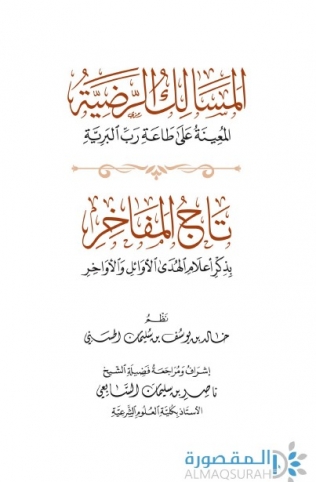 المَسَالِكُ الرَّضِيَّةُ
المُعِينَةُ عَلَىٰ طَاعَةِ رَبِّ البَرِيَّةِ
تَاجُ المَفَاخِرِ
بِذِكْرِ أَعْلَامِ الهُدَىٰ الأَوَائِلِ وَالأَوَاخِرِ
نَظْمُ
خالد بن يوسف بن سليمان الحسني
إشراف ومراجعة فضيلة الشيخ
ناصر بن سليمان السابعي
الأستاذ بكلية العلوم الشرعية
المقصورة
ALMAQSURAH